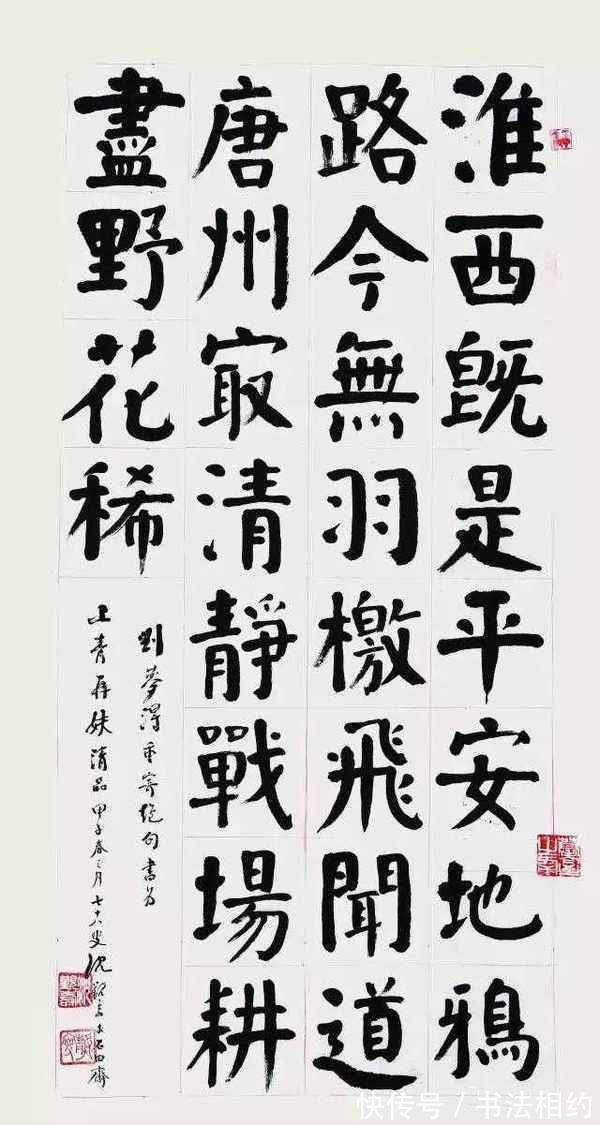 淮西既是平安地鴉
路今無羽檄飛聞道
唐州㝡清靜戰場耕
盡野花稀
劉夢得重寄絕句書為
上青 妹清品甲子春三月七十 叟沈觀壽 石田齋
快传号 / 书法相约